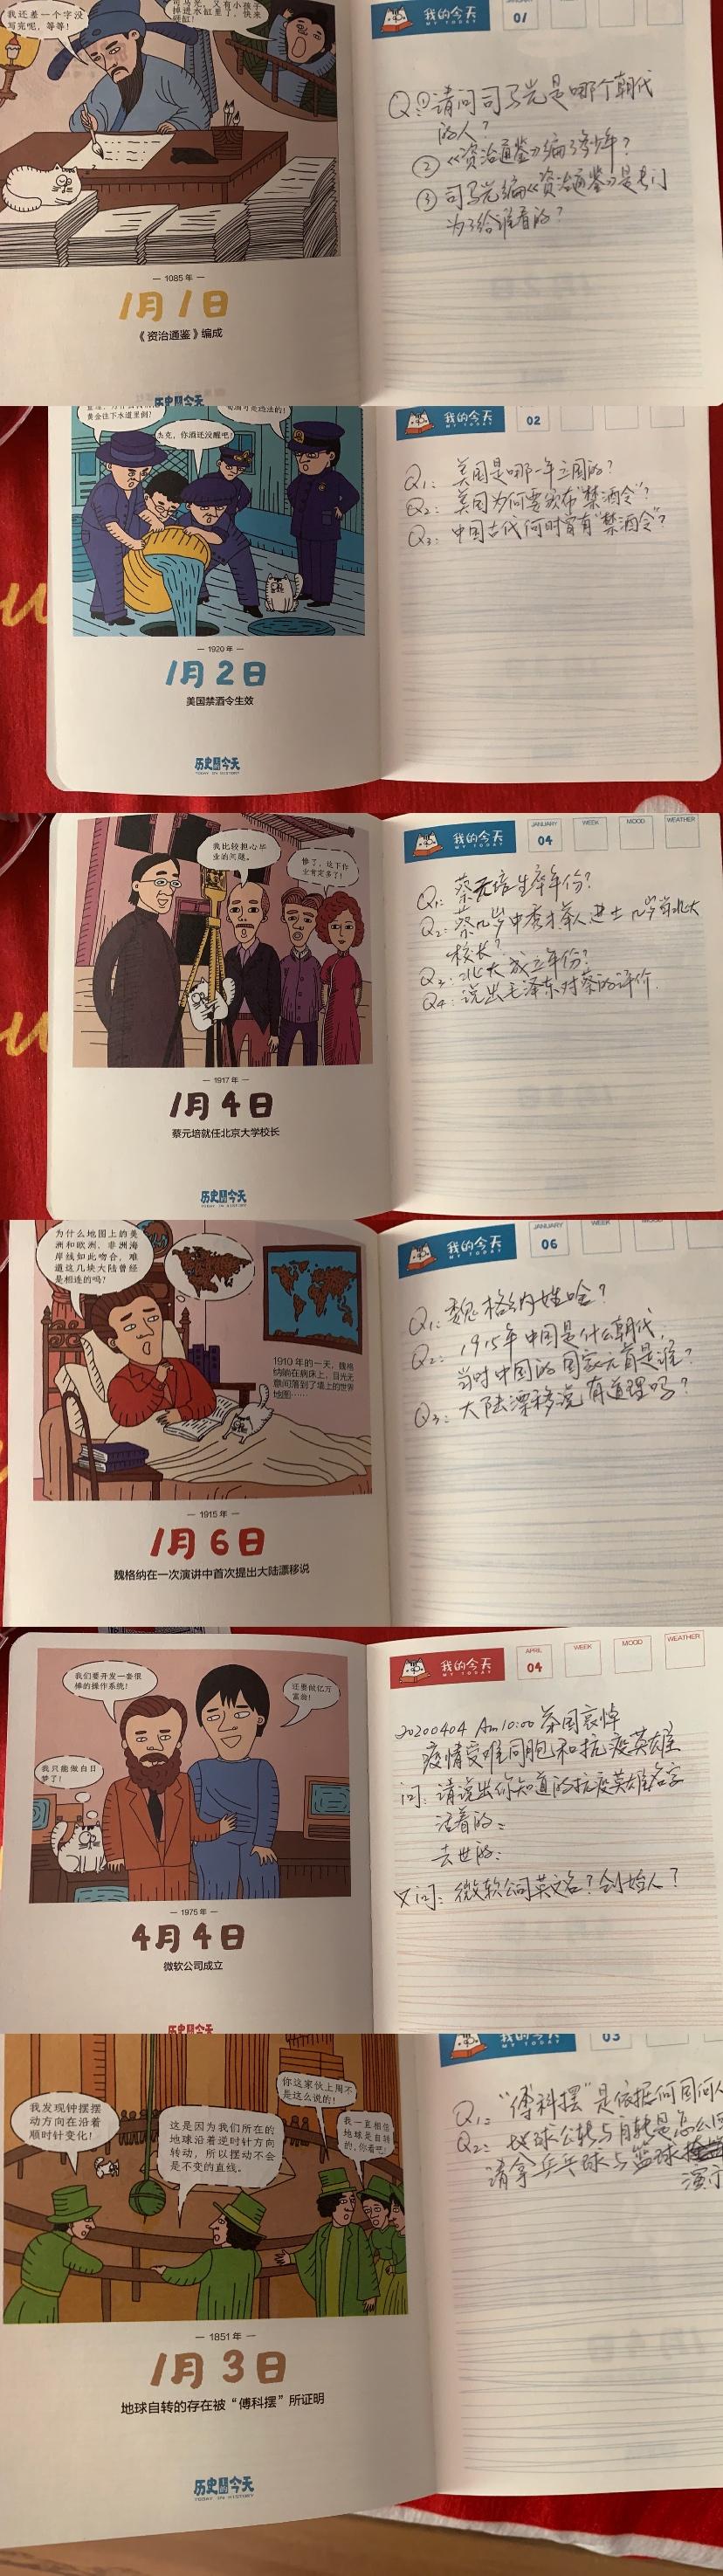 我还差一个字没
写完呢，等等！
司马光，又有小孩子
掉进水缸里了，快来
砸缸！
— 1085 年 —
1月1日
《资治通鉴》编成
历史那今天
我的今天
MY TODAY
JANUARY
01
Q：①请问司马光是哪个朝代
的人？
②《资治通鉴》编了多少年？
③司马光编《资治通鉴》是专门
为了给谁看的？
黄金往下水道里倒！
葡萄可是违法的！
杰克，你酒还没醒吧！
— 1920 年 —
1月2日
美国禁酒令生效
历史那今天
TODAY IN HISTORY
我的今天
MY TODAY
02
Q1：美国是哪一年立国的？
Q2：美国为何要颁布“禁酒令”？
Q3：中国古代何时曾有“禁酒令”？
我比较担心毕
业的问题。
惨了，这下作
业肯定多了！
— 1917 年 —
1月4日
蔡元培就任北京大学校长
历史那今天
TODAY IN HISTORY
我的今天
MY TODAY
JANUARY WEEK MOOD WEATHER
04
Q1：蔡元培生卒年份？
Q2：蔡几岁中秀才举人进士几岁当北大
校长？
Q3：北大成立年份？
Q4：说出毛泽东对蔡的评价.
为什么地图上的美
洲和欧洲、非洲海
岸线如此吻合，难
道这几块大陆曾经
是相连的吗？
1910 年的一天，魏格
纳躺在病床上，目光无
意间落到了墙上的世界
地图……
— 1915 年 —
1月6日
魏格纳在一次演讲中首次提出大陆漂移说
我的今天
MY TODAY
JANUARY WEEK MOOD
06
Q1：魏格纳姓啥？
Q2：1915年中国是什么朝代，
当时中国的国家元首是谁？
Q3：大陆漂移说有道理吗？
我们要开发一套很
棒的操作系统！
还要做亿万
富翁！
我只能做白日
梦了！
— 1975 年 —
4月4日
微软公司成立
历史那今天
我的今天
MY TODAY
APRIL WEEK MOOD WEATHER
04
20200404 Am10:00 举国哀悼
疫情受难同胞和抗疫英雄
问：请说出你知道的抗疫英雄名字
活着的：
去世的：
又问：微软公司英文名？创始人？
我发现钟摆摆
动方向在沿着
顺时针变化！
这是因为我们所在的
地球沿着逆时针方向
转动，所以摆动不会
是不变的直线。
你这家伙上周不
是这么说的！
我一直相信
地球是自转
的，你看吧！
— 1851 年 —
1月3日
地球自转的存在被“傅科摆”所证明
历史那今天
TODAY IN HISTORY
我的今天
MY TODAY
03
Q1：“傅科摆”是依据何国何人
Q2：地球公转与自转是怎么回
请拿乒乓球与篮球
演示